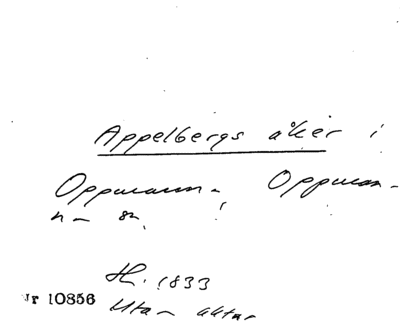 Appelbergs åker i
Oppmanna Oppman-
na sn.
H. 1833
Nr 10856 Utan aktnr